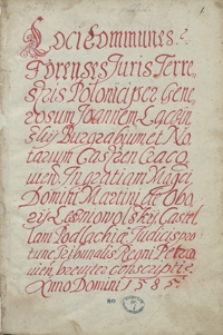 Loci Communes
Forenses Juris Terre
stris Polonici per Gene
rosum Joannem Łączin
sky Burgrabium et No
tarium Castren Craco
vien. In gratiam Magci
Domini Martini de Obo
ry Leśniowolski Castel
lani Podlachiæ Judicis pro
tunc Tribunalis Regni Petrico
vien. breviter conscripti
Anno Domini 1585